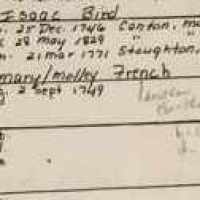 Isaac Bird
25 Dec 1746 Canton, ma
28 May 1829 " "
21 mar 1771 Stoughton,
mary/molly French
2 sept 1749